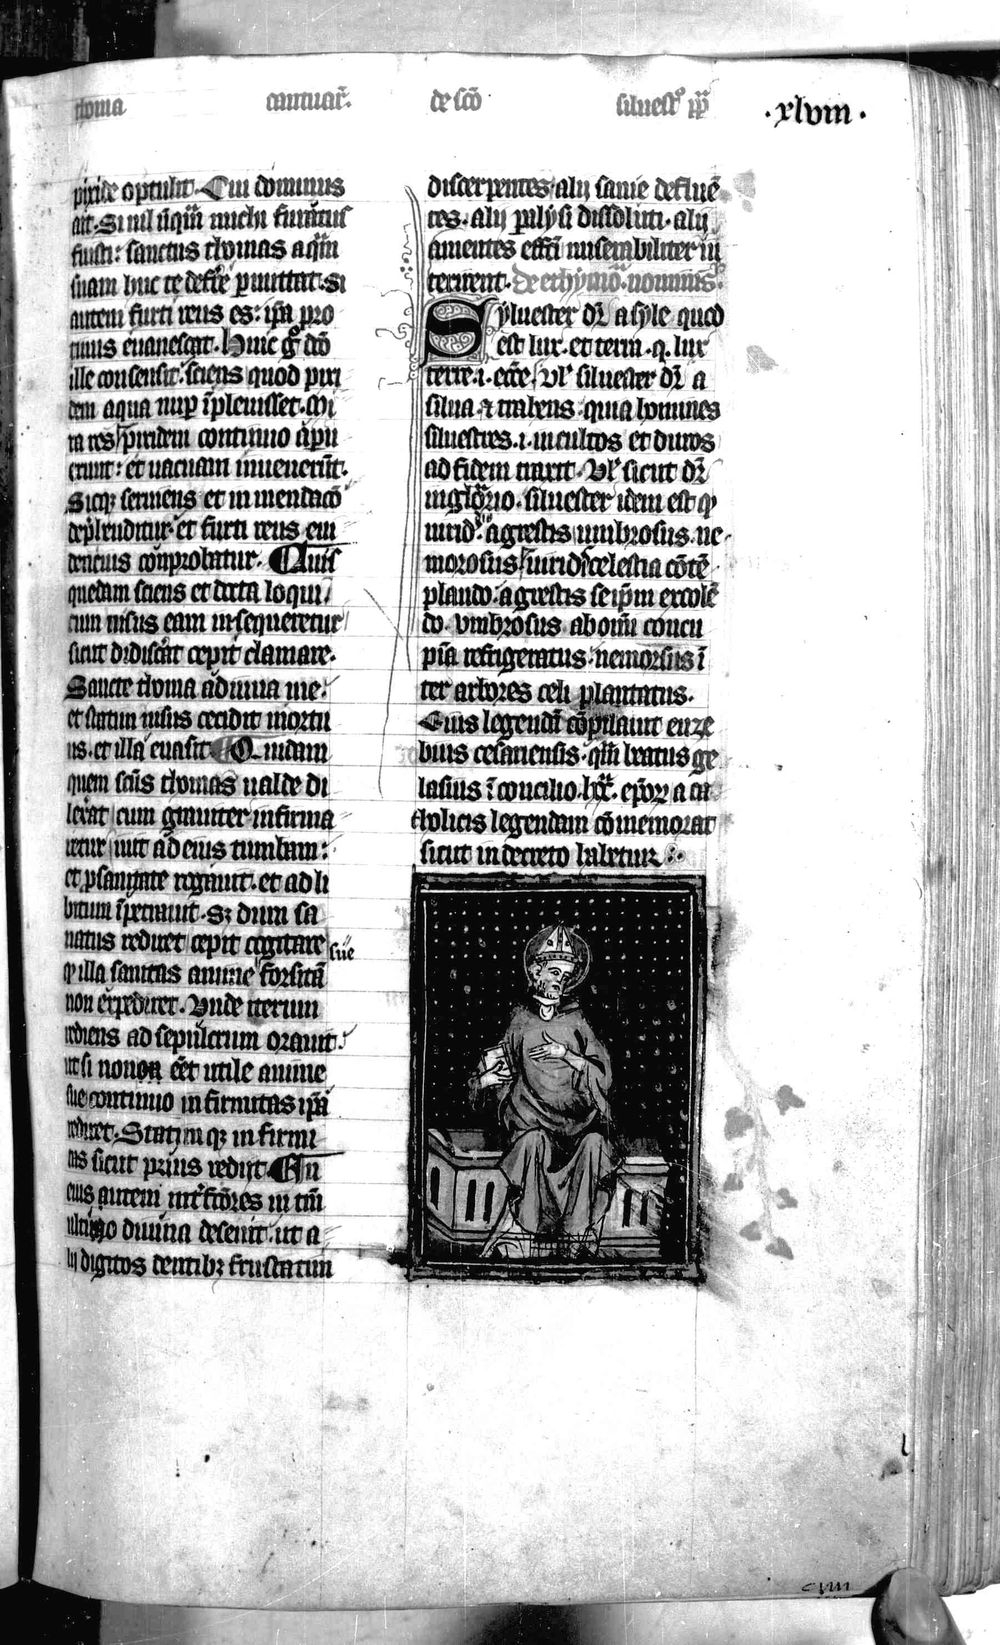 thoma cantuar̄. de sc̄o siluest͛o pp̄ ·xlviii·
pixide optulit. Cui dominus
ait. Si nil un̄q̄m michi furatus
fuisti: sanctus thomas aq̄m
suam huc te defer̄e p̱mittat. si
autem furti reus es: ip̄a pro
tinus euanescat. Huic g͛ dc̄o
ille consensit. sciens quod pixi
dem aqua nup̱ īpleuisset. Mi
ra res pixidem continuo apu
erunt: et uacuam inuenerūt.
Sicq; seruiens et in mendacō
dep̱henditur. et furti reus eui
dencius cōprobatur. Auis
quedam sciens et docta loqui
cum nisus eam insequeretur
sicut didiscāt cepit clamare.
Sancte thoma adiuua me.
et statim nisus cecidit mortu
us. et illa euasit. Quidam
quem sc̄us thomas ualde di
lex̄at cum grauiter infirma
retur iuit ad eius tumbam:
et p̱ sanitate rogauit. et ad li
bitum īpetrauit. Sꝫ dum sa
natus rediret cepit cogitare
q̱ illa sanitas anime sue forsitā
non expediret. Vnde iterum
rediens ad sepulcrum orauit.
ut si non eēt utile anime
sue continuo infirmitas ip̄a
rediret. Statimq; infirmi
tas sicut prius redijt. In
eius autem int̄fc̄ores in tm̄
ultio diuina deseuit. ut a
lij digitos dentibꝫ frustatim
discerpentes alij sanie defluē
tes. alij paralysi dissoluti. alij
amentes effc̄i miserabiliter in
terirent. de ethymo. nominis.
Syluester dr̄ a syle quod
est lux. et terra. q. lux
terre .i. ecc̄e. Vl̄ siluester dr̄ a
silua et trahens. quia homines
siluestres .i. incultos et duros
ad fidem traxit. Vl̄ sicut dr̄
in glosario. siluester idem est q̱
uirid̄. agrestis umbrosus. ne
morosus. uirid̄ celestia cōtē
plando. agrestis seip̄m excolē
do. vmbrosus ab om̄i concu
pīa refrigeratus. nemorsus ī
ter arbores celi plantatus.
Eius legendā cōpilauit euze
bius cesariensis. qm̄ beatus ge
lasius ī concilio .lxx. ep̄orꝝ a ca
tholicis legendam cōmemorat
sicut in decreto habetur.
cviii